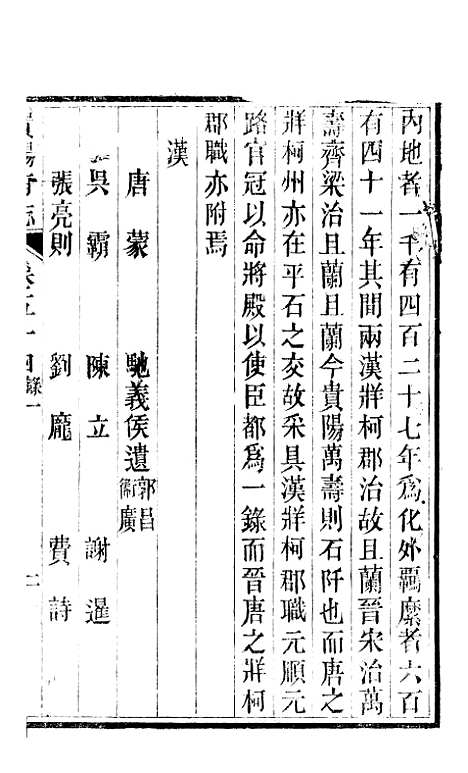 內地者一千有四百二十七年爲化外羈縻者六百
有四十一年其間兩漢牂柯郡治故且蘭晉宋治萬
壽齊梁治且蘭且蘭今貴陽萬壽則石阡也而唐之
牂柯州亦在平石之交故采具漢牂柯郡職元順元
路官冠以命將殿以使臣都爲一錄而晉唐之牂柯
郡職亦附焉
漢
唐蒙 馳義侯遺 郭昌 衞廣
吳霸 陳立 謝暹
張亮則 劉龐 費詩
貴陽府志 卷五十四 錄一 二